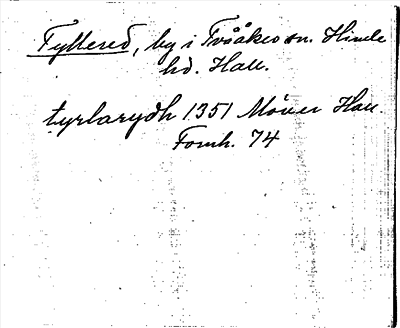 Fyllered, by i Tvååkers sn. Himle
hd. Hall.
tyrlarydh 1351 Möller Hall.
Fornh. 74